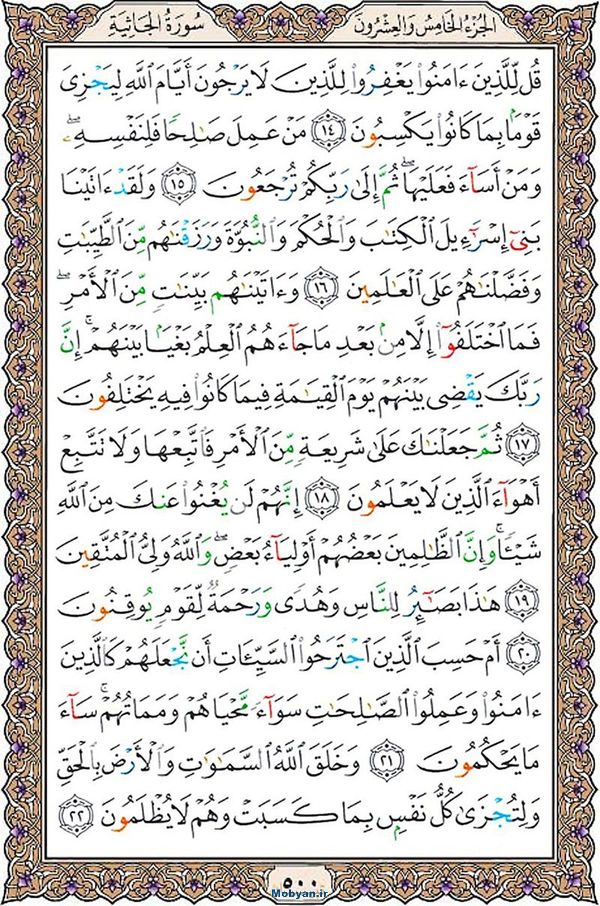 الجزء الخامس والعشرون سورة الجاثية
قُل لِّلَّذِينَ ءَامَنُوا۟ يَغْفِرُوا۟ لِلَّذِينَ لَا يَرْجُونَ أَيَّامَ ٱللَّهِ لِيَجْزِىَ
قَوْمًۢا بِمَا كَانُوا۟ يَكْسِبُونَ ١٤ مَنْ عَمِلَ صَٰلِحًا فَلِنَفْسِهِۦ ۖ
وَمَنْ أَسَآءَ فَعَلَيْهَا ۖ ثُمَّ إِلَىٰ رَبِّكُمْ تُرْجَعُونَ ١٥ وَلَقَدْ ءَاتَيْنَا
بَنِىٓ إِسْرَٰٓءِيلَ ٱلْكِتَٰبَ وَٱلْحُكْمَ وَٱلنُّبُوَّةَ وَرَزَقْنَٰهُم مِّنَ ٱلطَّيِّبَٰتِ
وَفَضَّلْنَٰهُمْ عَلَى ٱلْعَٰلَمِينَ ١٦ وَءَاتَيْنَٰهُم بَيِّنَٰتٍ مِّنَ ٱلْأَمْرِ ۖ
فَمَا ٱخْتَلَفُوٓا۟ إِلَّا مِنۢ بَعْدِ مَا جَآءَهُمُ ٱلْعِلْمُ بَغْيًۢا بَيْنَهُمْ ۚ إِنَّ
رَبَّكَ يَقْضِى بَيْنَهُمْ يَوْمَ ٱلْقِيَٰمَةِ فِيمَا كَانُوا۟ فِيهِ يَخْتَلِفُونَ
١٧ ثُمَّ جَعَلْنَٰكَ عَلَىٰ شَرِيعَةٍ مِّنَ ٱلْأَمْرِ فَٱتَّبِعْهَا وَلَا تَتَّبِعْ
أَهْوَآءَ ٱلَّذِينَ لَا يَعْلَمُونَ ١٨ إِنَّهُمْ لَن يُغْنُوا۟ عَنكَ مِنَ ٱللَّهِ
شَيْـًٔا ۚ وَإِنَّ ٱلظَّٰلِمِينَ بَعْضُهُمْ أَوْلِيَآءُ بَعْضٍ ۖ وَٱللَّهُ وَلِىُّ ٱلْمُتَّقِينَ
١٩ هَٰذَا بَصَٰٓئِرُ لِلنَّاسِ وَهُدًى وَرَحْمَةٌ لِّقَوْمٍ يُوقِنُونَ
٢٠ أَمْ حَسِبَ ٱلَّذِينَ ٱجْتَرَحُوا۟ ٱلسَّيِّـَٔاتِ أَن نَّجْعَلَهُمْ كَٱلَّذِينَ
ءَامَنُوا۟ وَعَمِلُوا۟ ٱلصَّٰلِحَٰتِ سَوَآءً مَّحْيَاهُمْ وَمَمَاتُهُمْ ۚ سَآءَ
مَا يَحْكُمُونَ ٢١ وَخَلَقَ ٱللَّهُ ٱلسَّمَٰوَٰتِ وَٱلْأَرْضَ بِٱلْحَقِّ
وَلِتُجْزَىٰ كُلُّ نَفْسٍۭ بِمَا كَسَبَتْ وَهُمْ لَا يُظْلَمُونَ ٢٢
٥٠٠
Mobyan.ir